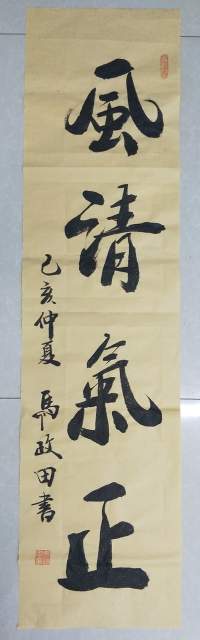 風清氣正
己亥仲夏 馬政田書